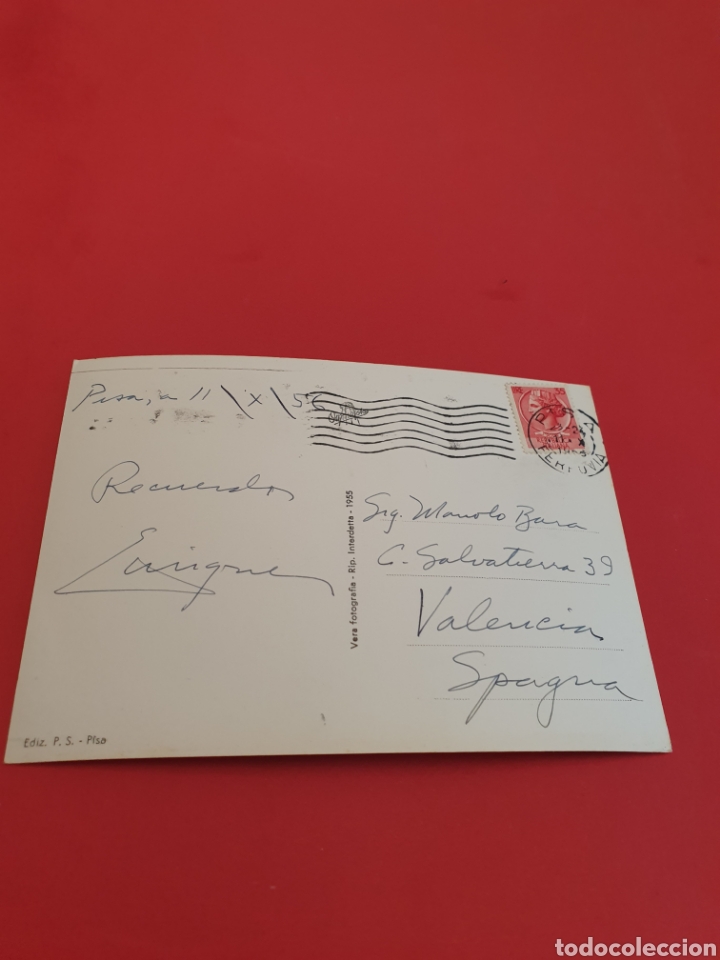 Pisa, a 11 \ X \ 56
Recuerdos
Enrique
Vera fotografia - Rip. Interdetta - 1955
Sig. Manolo Bara
C. Salvatierra 39
Valencia
Spagna
Ediz. P. S. - Pisa
todocoleccion